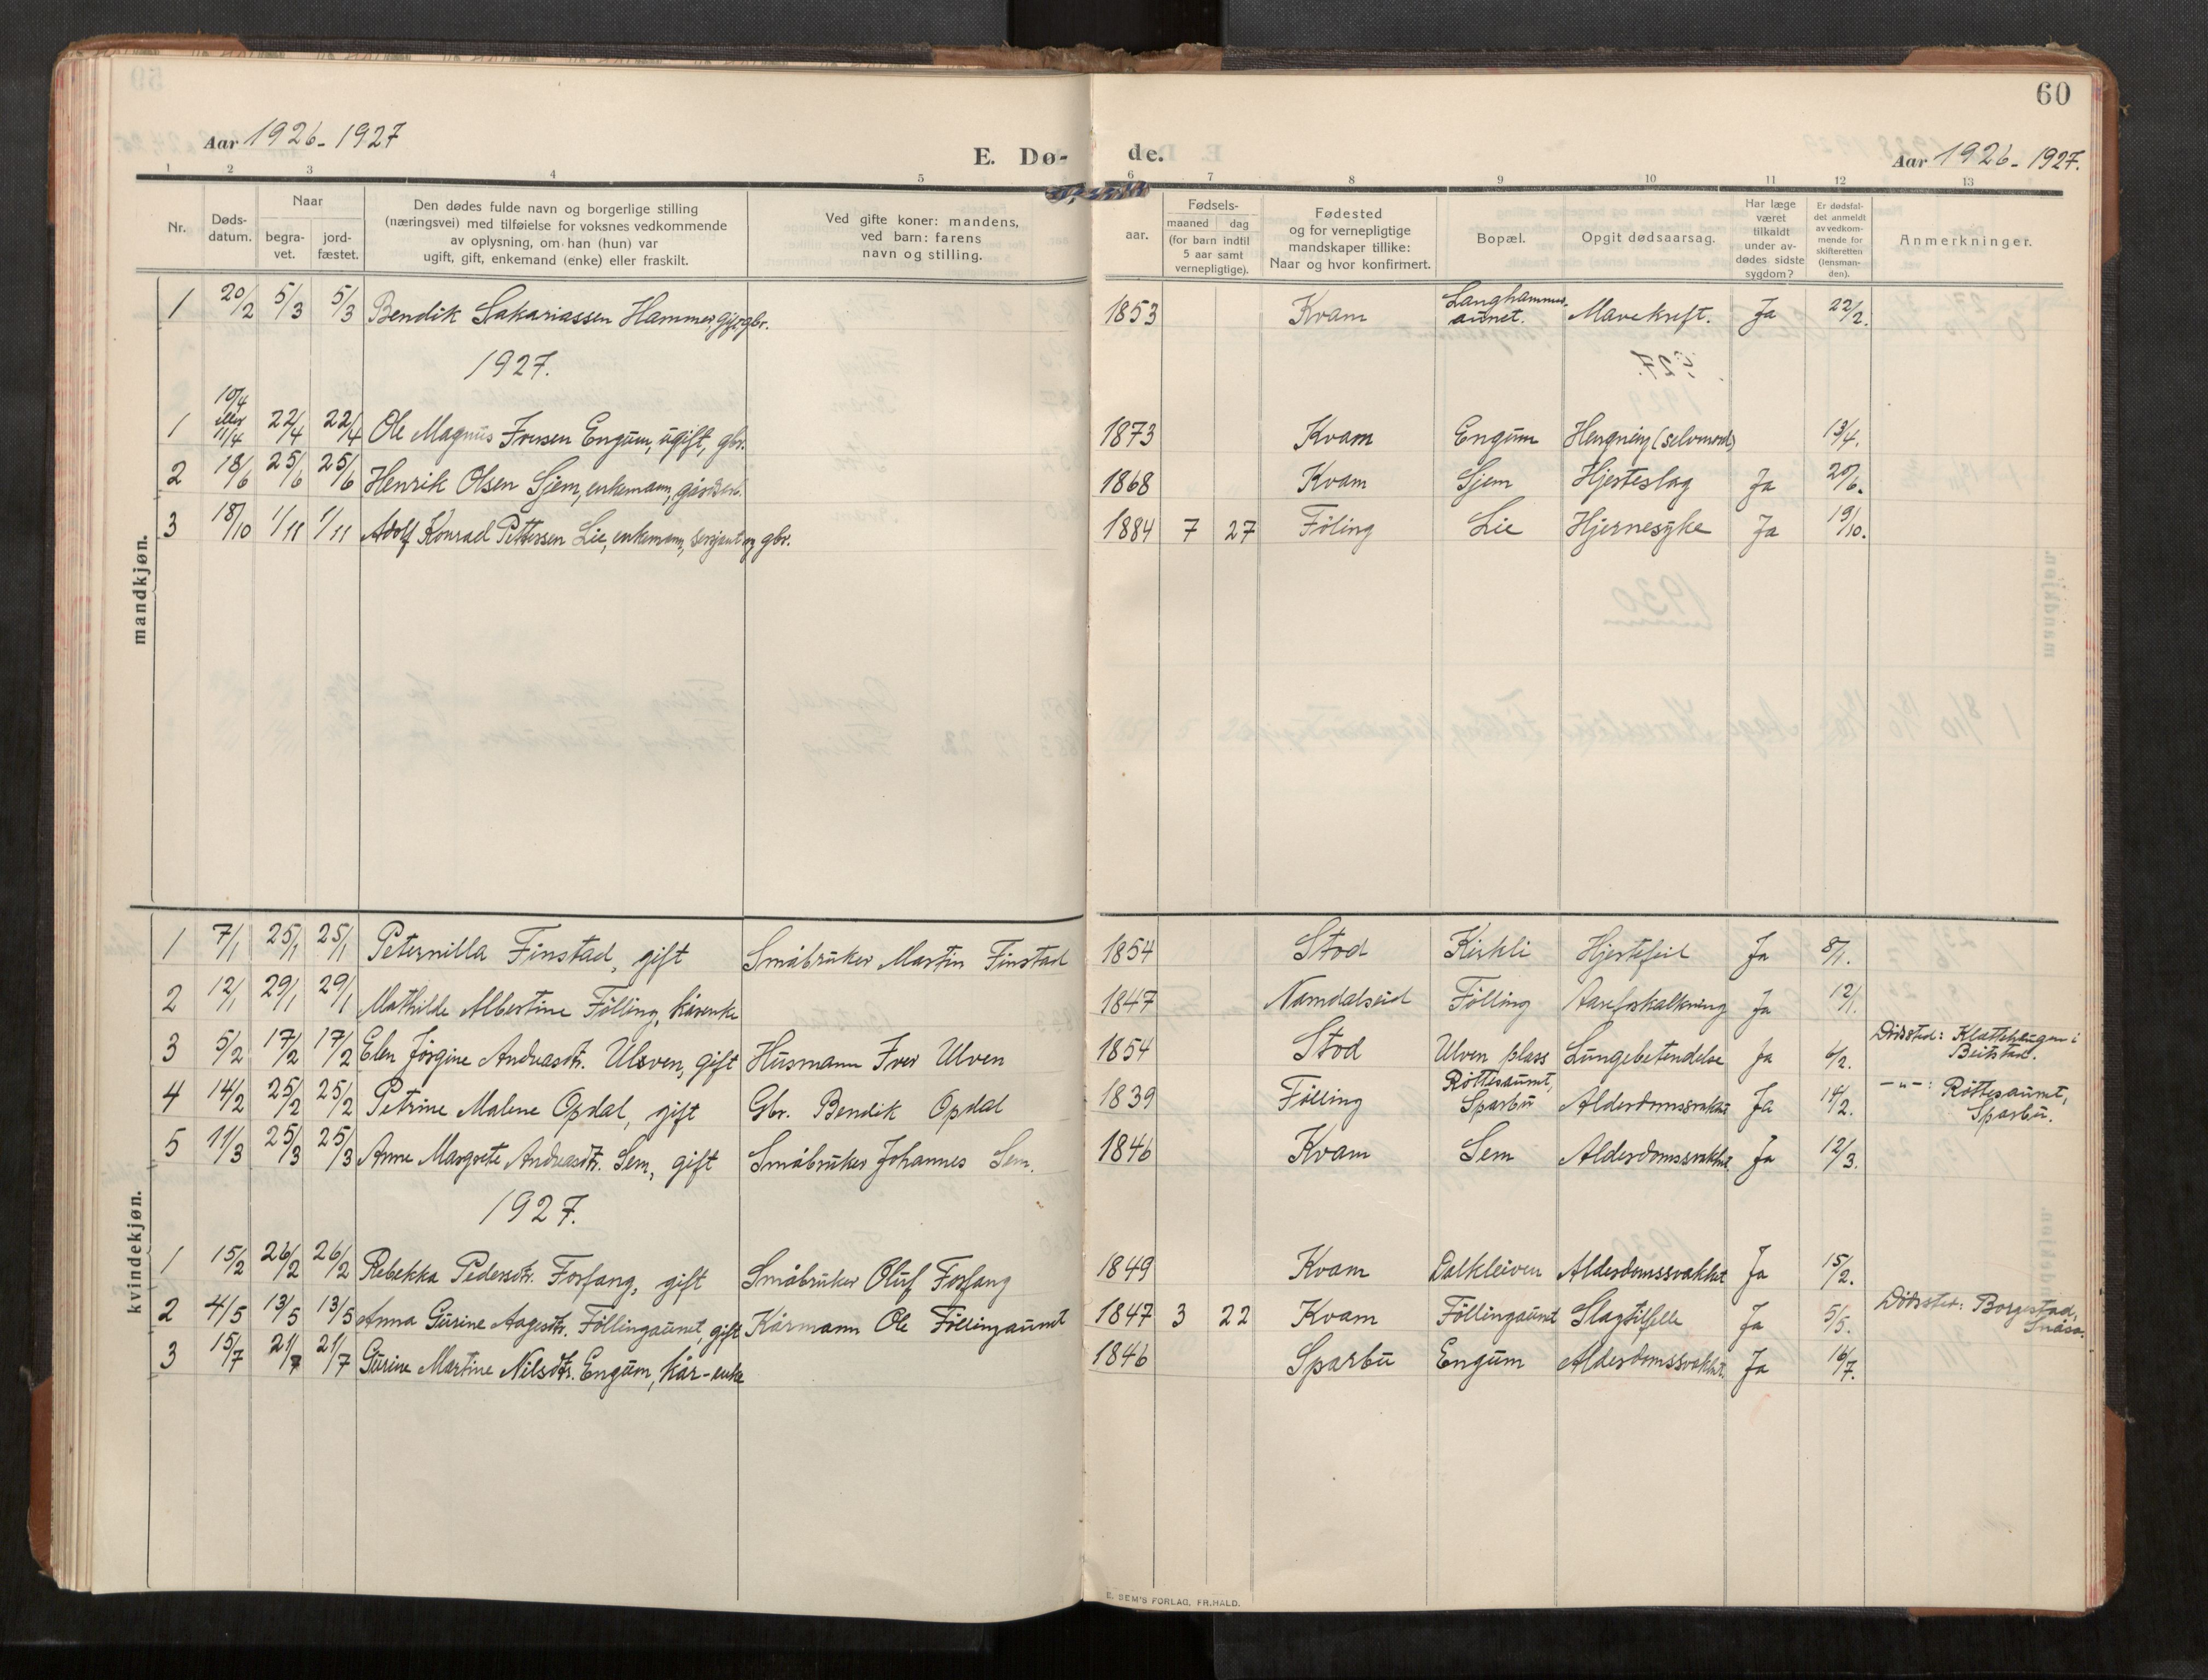 60
Aar 1926-1927
E. Dø-
de.
Aar 1926-1927.
1 2 3 4 5 6 7 8 9 10 11 12 13
Nr.
Døds-
datum.
Naar
begra-
vet.
jord-
fæstet.
Den dødes fulde navn og borgerlige stilling
(næringsvei) med tilføielse for voksnes vedkommende
av oplysning, om han (hun) var
ugift, gift, enkemand (enke) eller fraskilt.
Ved gifte koner: mandens,
ved barn: farens
navn og stilling.
aar.
Fødsels-
maaned dag
(for barn indtil
5 aar samt
vernepligtige).
Fødested
og for vernepligtige
mandskaper tillike:
Naar og hvor konfirmert.
Bopæl.
Opgit dødsaarsag.
Har læge
været
tilkaldt
under av-
dødes sidste
sygdom?
Er dødsfal-
det anmeldt
av vedkom-
mende for
skifteretten
(lensman-
den).
Anmerkninger.
mandkjøn.
1 20/2 5/3 5/3 Bendik Sakariassen Hammer, gift, gbr. 1853 Kvam Langhammer-
aunet. Mavekreft. Ja 22/2.
1927.
1 10/4 eller 11/4 22/4 22/4 Ole Magnus Iversen Engum, ugift, gbr. 1873 Kvam Engum Hengning (selvmord) 13/4.
2 18/6 25/6 25/6 Henrik Olsen Gjem, enkemann, 1868 Kvam Gjem Hjerteslag Ja 20/6.
3 18/10 1/11 1/11 Adolf Konrad Pettersen Lie, enkemann, sersjant og gbr. 1884 7 27 Føling Lie Hjernesyke Ja 19/10.
kvindekjøn.
1 7/1 25/1 25/1 Peternilla Finstad, gift Småbruker Martin Finstad 1854 Stod Kirkli Hjertefeil Ja 8/1.
2 12/1 29/1 29/1 Mathilde Albertine Følling, kårenke 1847 Namdalseid Følling Aareforkalkning Ja 12/1.
3 5/2 17/2 17/2 Elen Jørgine Andreasdtr. Ulven, gift Husmann Iver Ulven 1854 Stod Ulven plass Lungebetendelse Ja 6/2. Dødssted: Klattehaugen i
Beitstad.
4 14/2 25/2 25/2 Petrine Malene Opdal, gift Gbr. Bendik Opdal 1839 Følling Røttesaunet,
Sparbu Alderdomssvakhet Ja 14/2. -"-: Røttesaunet,
Sparbu.
5 11/3 25/3 25/3 Anne Margrete Andreasdtr. Sem, gift Småbruker Johannes Sem. 1846 Kvam Sem Alderdomssvakhet Ja 12/3.
1927.
1 15/2 26/2 26/2 Rebekka Pedersdtr. Forfang, gift Småbruker Oluf Forfang 1849 Kvam Dalkleiven Alderdomssvakhet Ja 15/2.
2 4/5 13/5 13/5 Anna Gurine Aagesdtr. Föllingaunet, gift Kårmann Ole Föllingaunet 1847 3 22 Kvam Föllingaunet Slagtilfelle Ja 5/5. Dødssted: Borgestad,
Snåsa.
3 15/7 21/7 21/7 Gurine Martine Nilsdtr. Engum, kår-enke 1846 Sparbu Engum Alderdomssvakhet. Ja 16/7.
E. SEM'S FORLAG, FR.HALD.